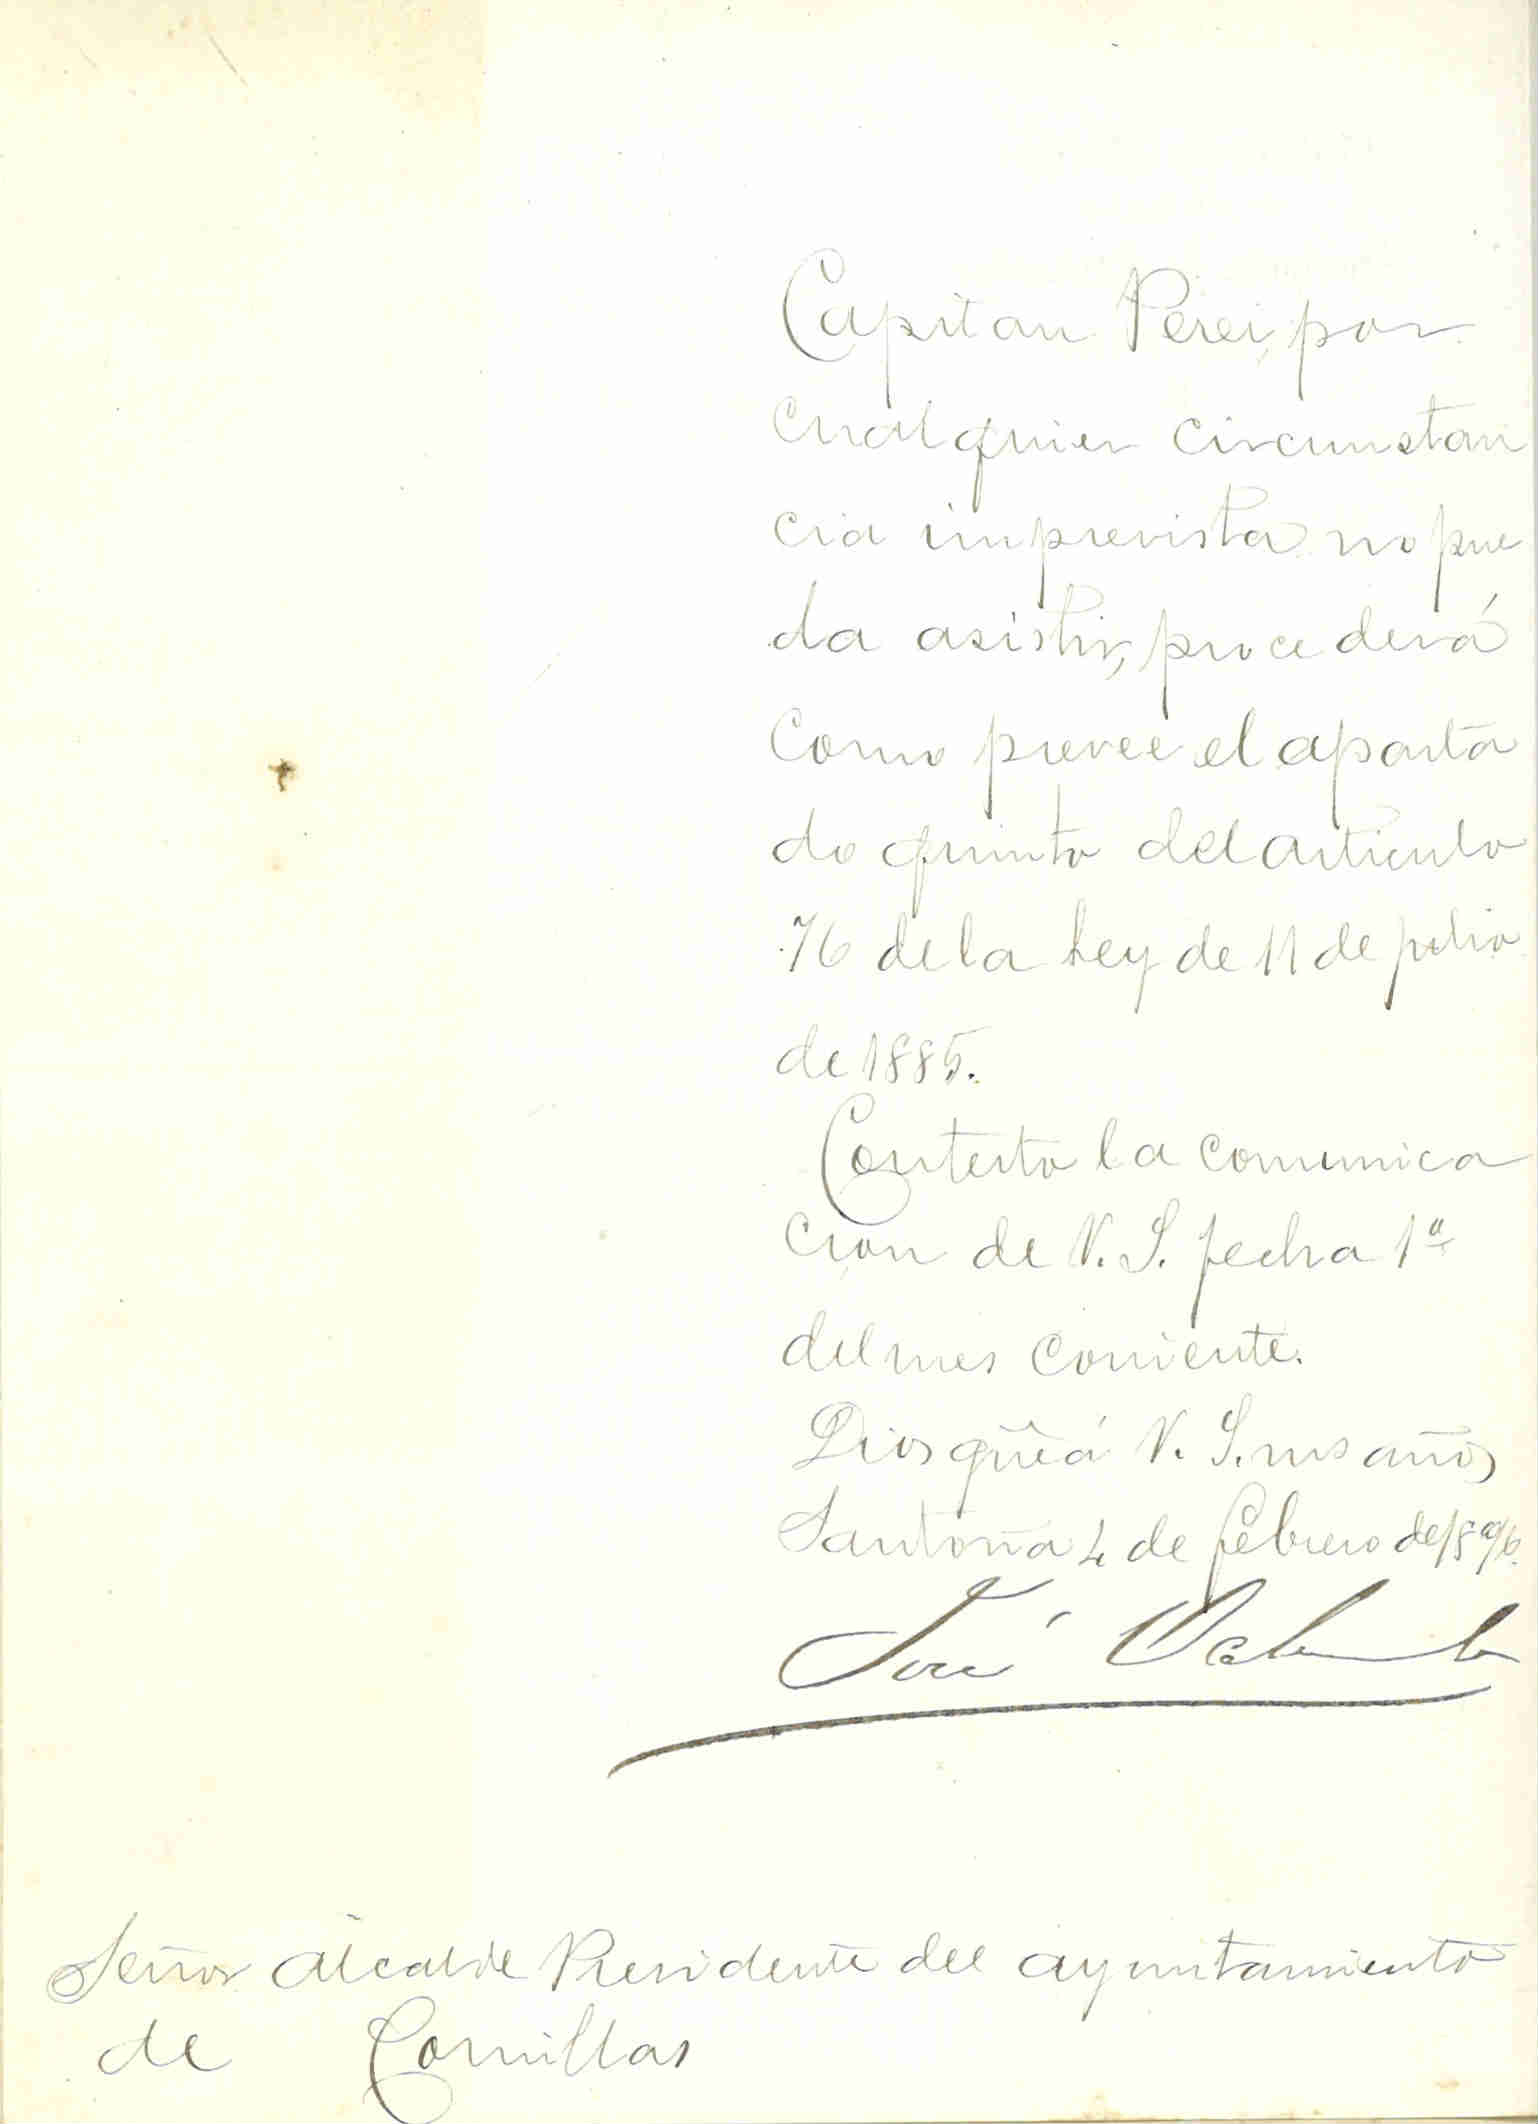 Capitan Perez, por
cualquier circunstan
cia imprevista no pue
da asistir, procederá
como prevee el aparta
do quinto del articulo
76 de la Ley de 11 de julio
de 1885.
Contesto la comunica
cion de V. S. fecha 1º
del mes corriente.
Dios gũe á V. S. ms años
Santoña 4 de febrero de 1896.
José
Señor Alcalde Presidente del ayuntamiento
de Comillas